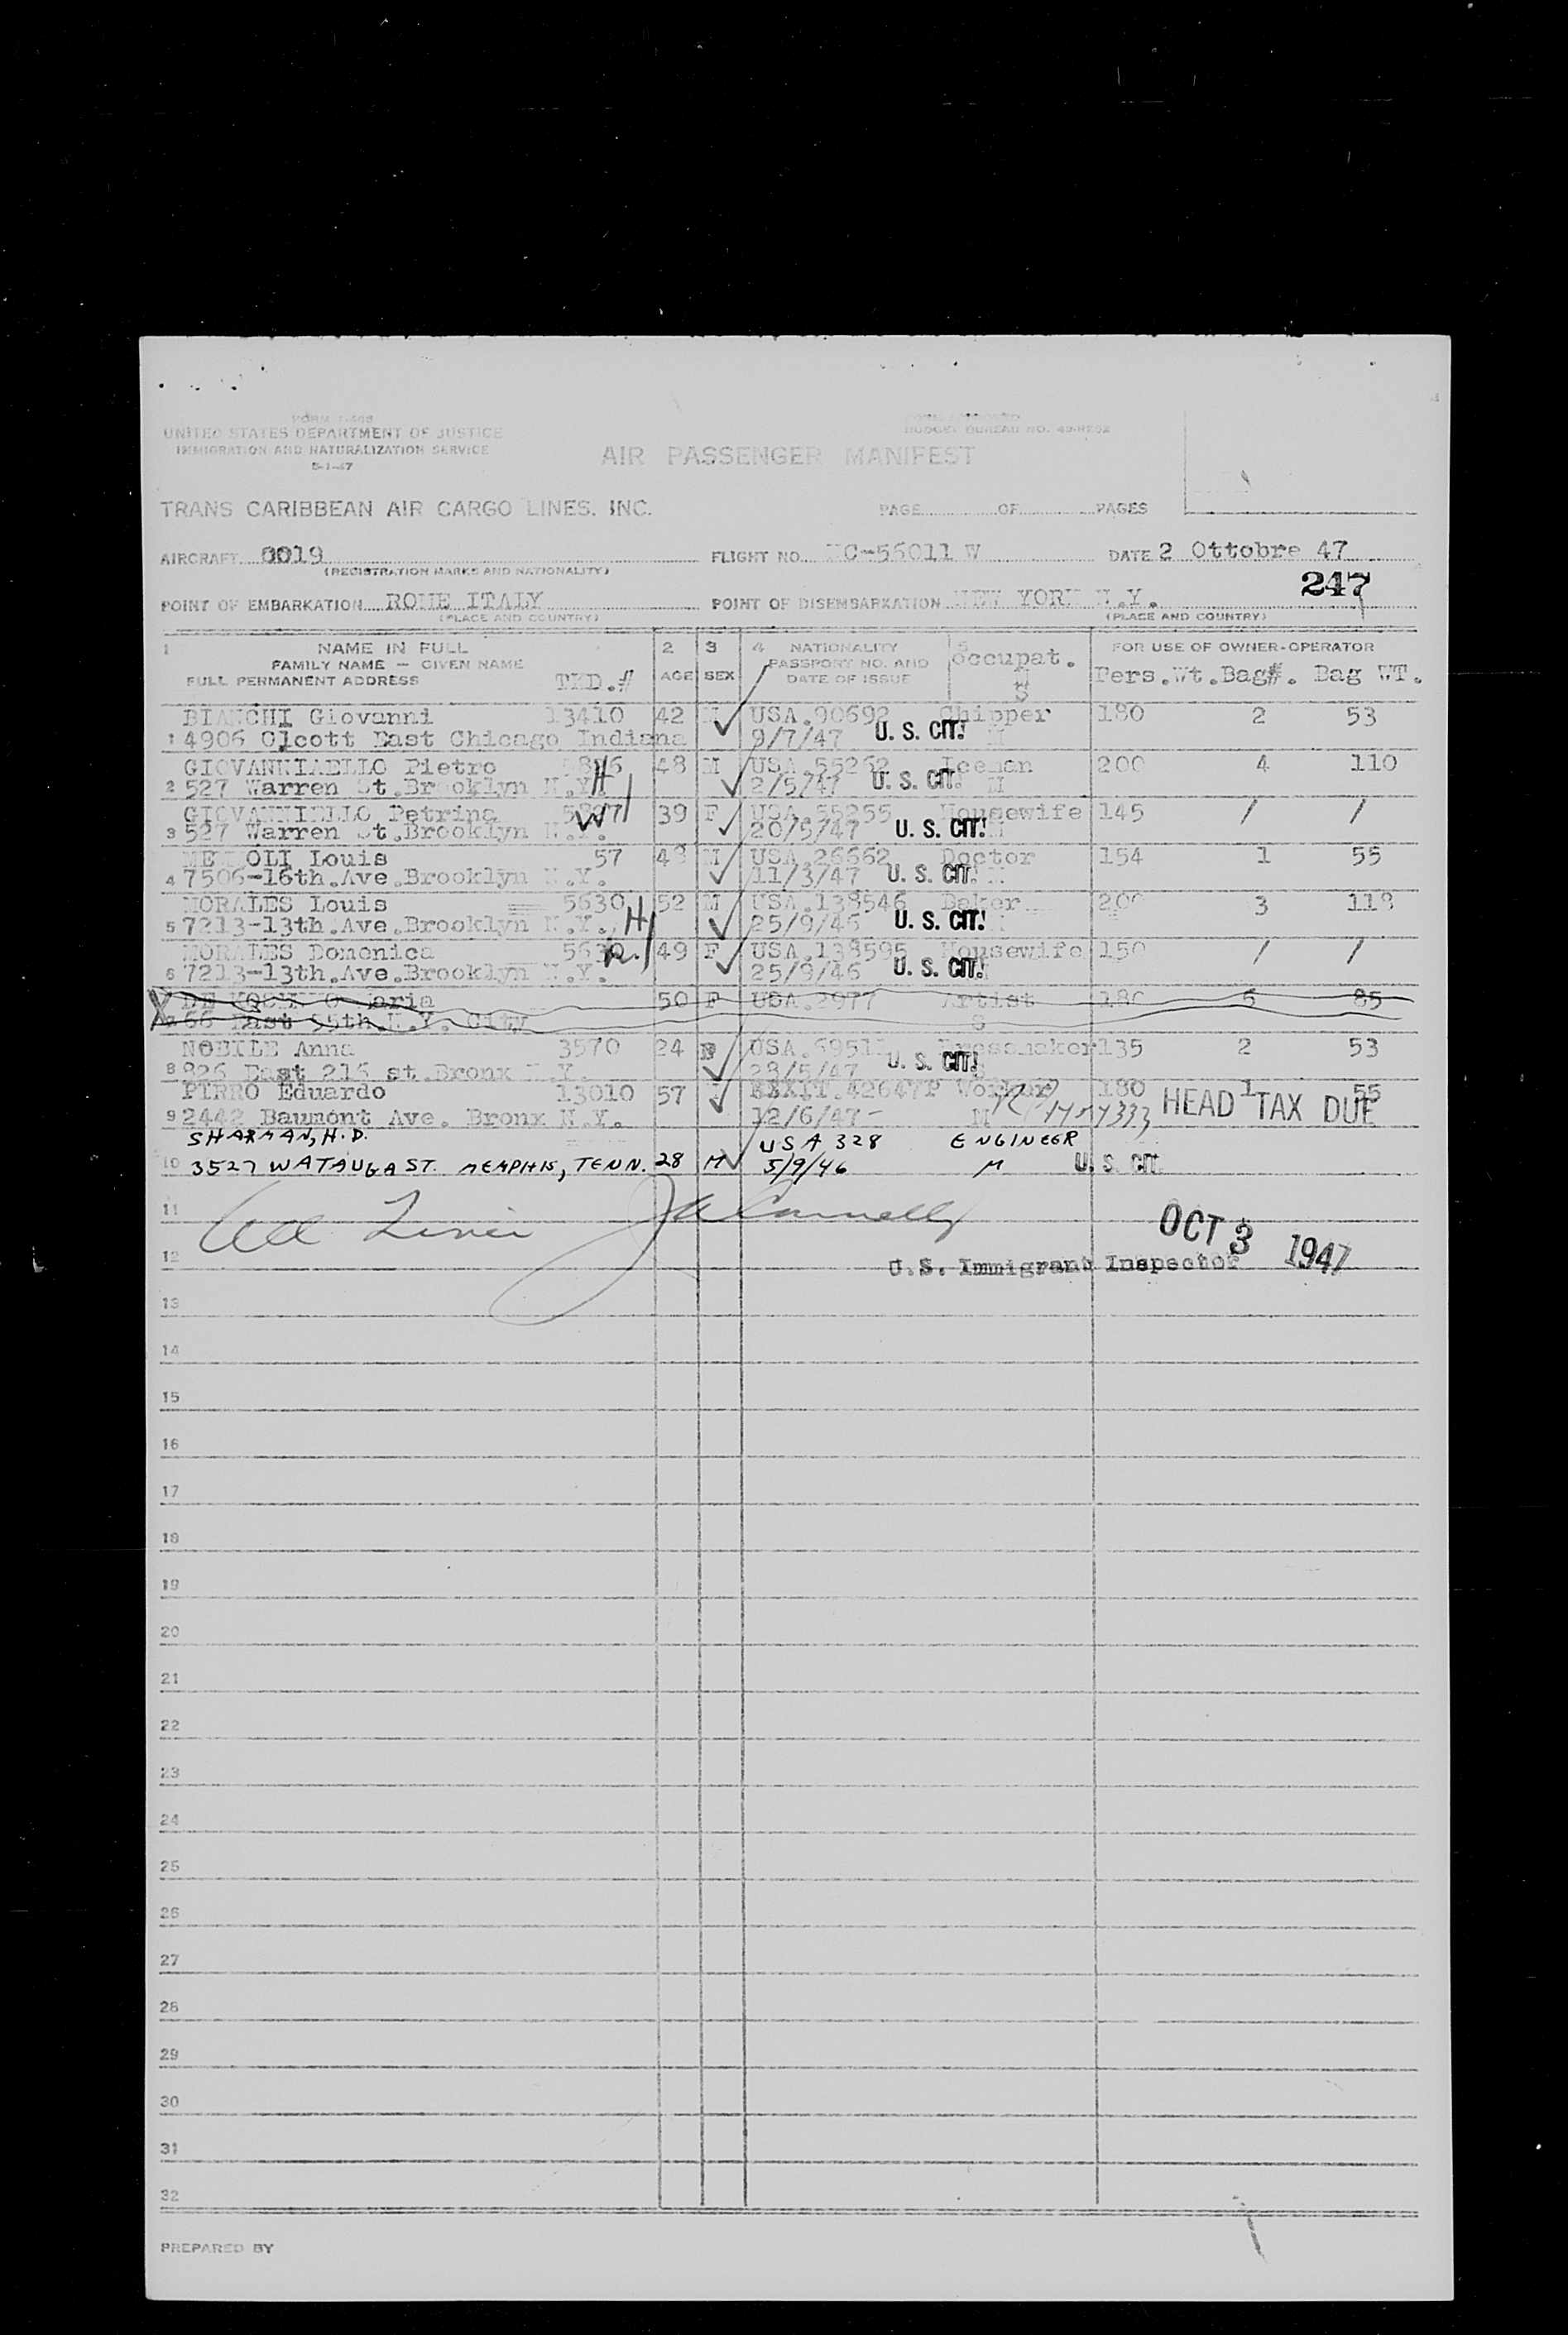 FORM I-466
UNITED STATES DEPARTMENT OF JUSTICE
IMMIGRATION AND NATURALIZATION SERVICE
5-1-47
BUDGET BUREAU NO.
AIR PASSENGER MANIFEST
TRANS CARIBBEAN AIR CARGO LINES. INC.
PAGE OF PAGES
AIRCRAFT 0019
(REGISTRATION MARKS AND NATIONALITY)
FLIGHT NO. NC-56011 W
DATE 2 Ottobre 47
247
POINT OF EMBARKATION ROME ITALY
(PLACE AND COUNTRY)
POINT OF DISEMBARKATION NEW YORK N.Y.
(PLACE AND COUNTRY)
1 NAME IN FULL 2 3 4 NATIONALITY 5 FOR USE OF OWNER-OPERATOR
FAMILY NAME — GIVEN NAME PASSPORT NO. AND Occupat.
FULL PERMANENT ADDRESS TKD.# AGE SEX DATE OF ISSUE M # S Pers.Wt. Bag#. Bag WT.
BIANCHI Giovanni 13410 42 M USA.90692 Chipper 180 2 53
1 4906 Olcott East Chicago Indiana 9/7/47 U. S. CIT. M
GIOVANNIAELLO Pietro 48 M USA.55262 Iceman 200 4 110
2 527 Warren St.Brooklyn N.Y. H 2/5/47 U. S. CIT. M
GIOVANNIELLO Petrina 5827 39 F USA.55255 Housewife 145 / /
3 527 Warren St.Brooklyn N.Y. W 20/5/47 U. S. CIT. M
OLI Louis 57 48 M USA.26662 Doctor 154 1 55
4 7506-16th.Ave.Brooklyn N.Y. 11/3/47 U. S. CIT. M
MORALES Louis 5630 52 M USA.138546 Baker 200 3 118
5 7213-13th.Ave.Brooklyn N.Y. H 25/9/46 U. S. CIT.
MORALES Domenica 49 F USA.138595 Housewife 150 / /
6 7213-13th.Ave.Brooklyn N.Y. 25/9/46 U. S. CIT.
X DE Maria 50 F USA.2977 Artist 180 6 85
7 66 East 95th.N.Y. City S
NOBILE Anna 3570 24 F USA.6951 Dressmaker 135 2 53
8 826 East 216 st.Bronx N.Y. 28/5/47 U. S. CIT. S
PIRRO Eduardo 13010 57 M EXXIT.42647P Worker 180 1 55
9 2442 Baumont Ave. Bronx N.Y. 12/6/47- M HEAD TAX DUE
SHARMAN, H.D. USA 328 ENGINEER
10 3527 WATAUGA ST. MEMPHIS, TENN. 28 M 5/9/46 M U. S. CIT.
11
OCT 3 1947
12
U.S. Immigrant Inspector
13
14
15
16
17
18
19
20
21
22
23
24
25
26
27
28
29
30
31
32
PREPARED BY